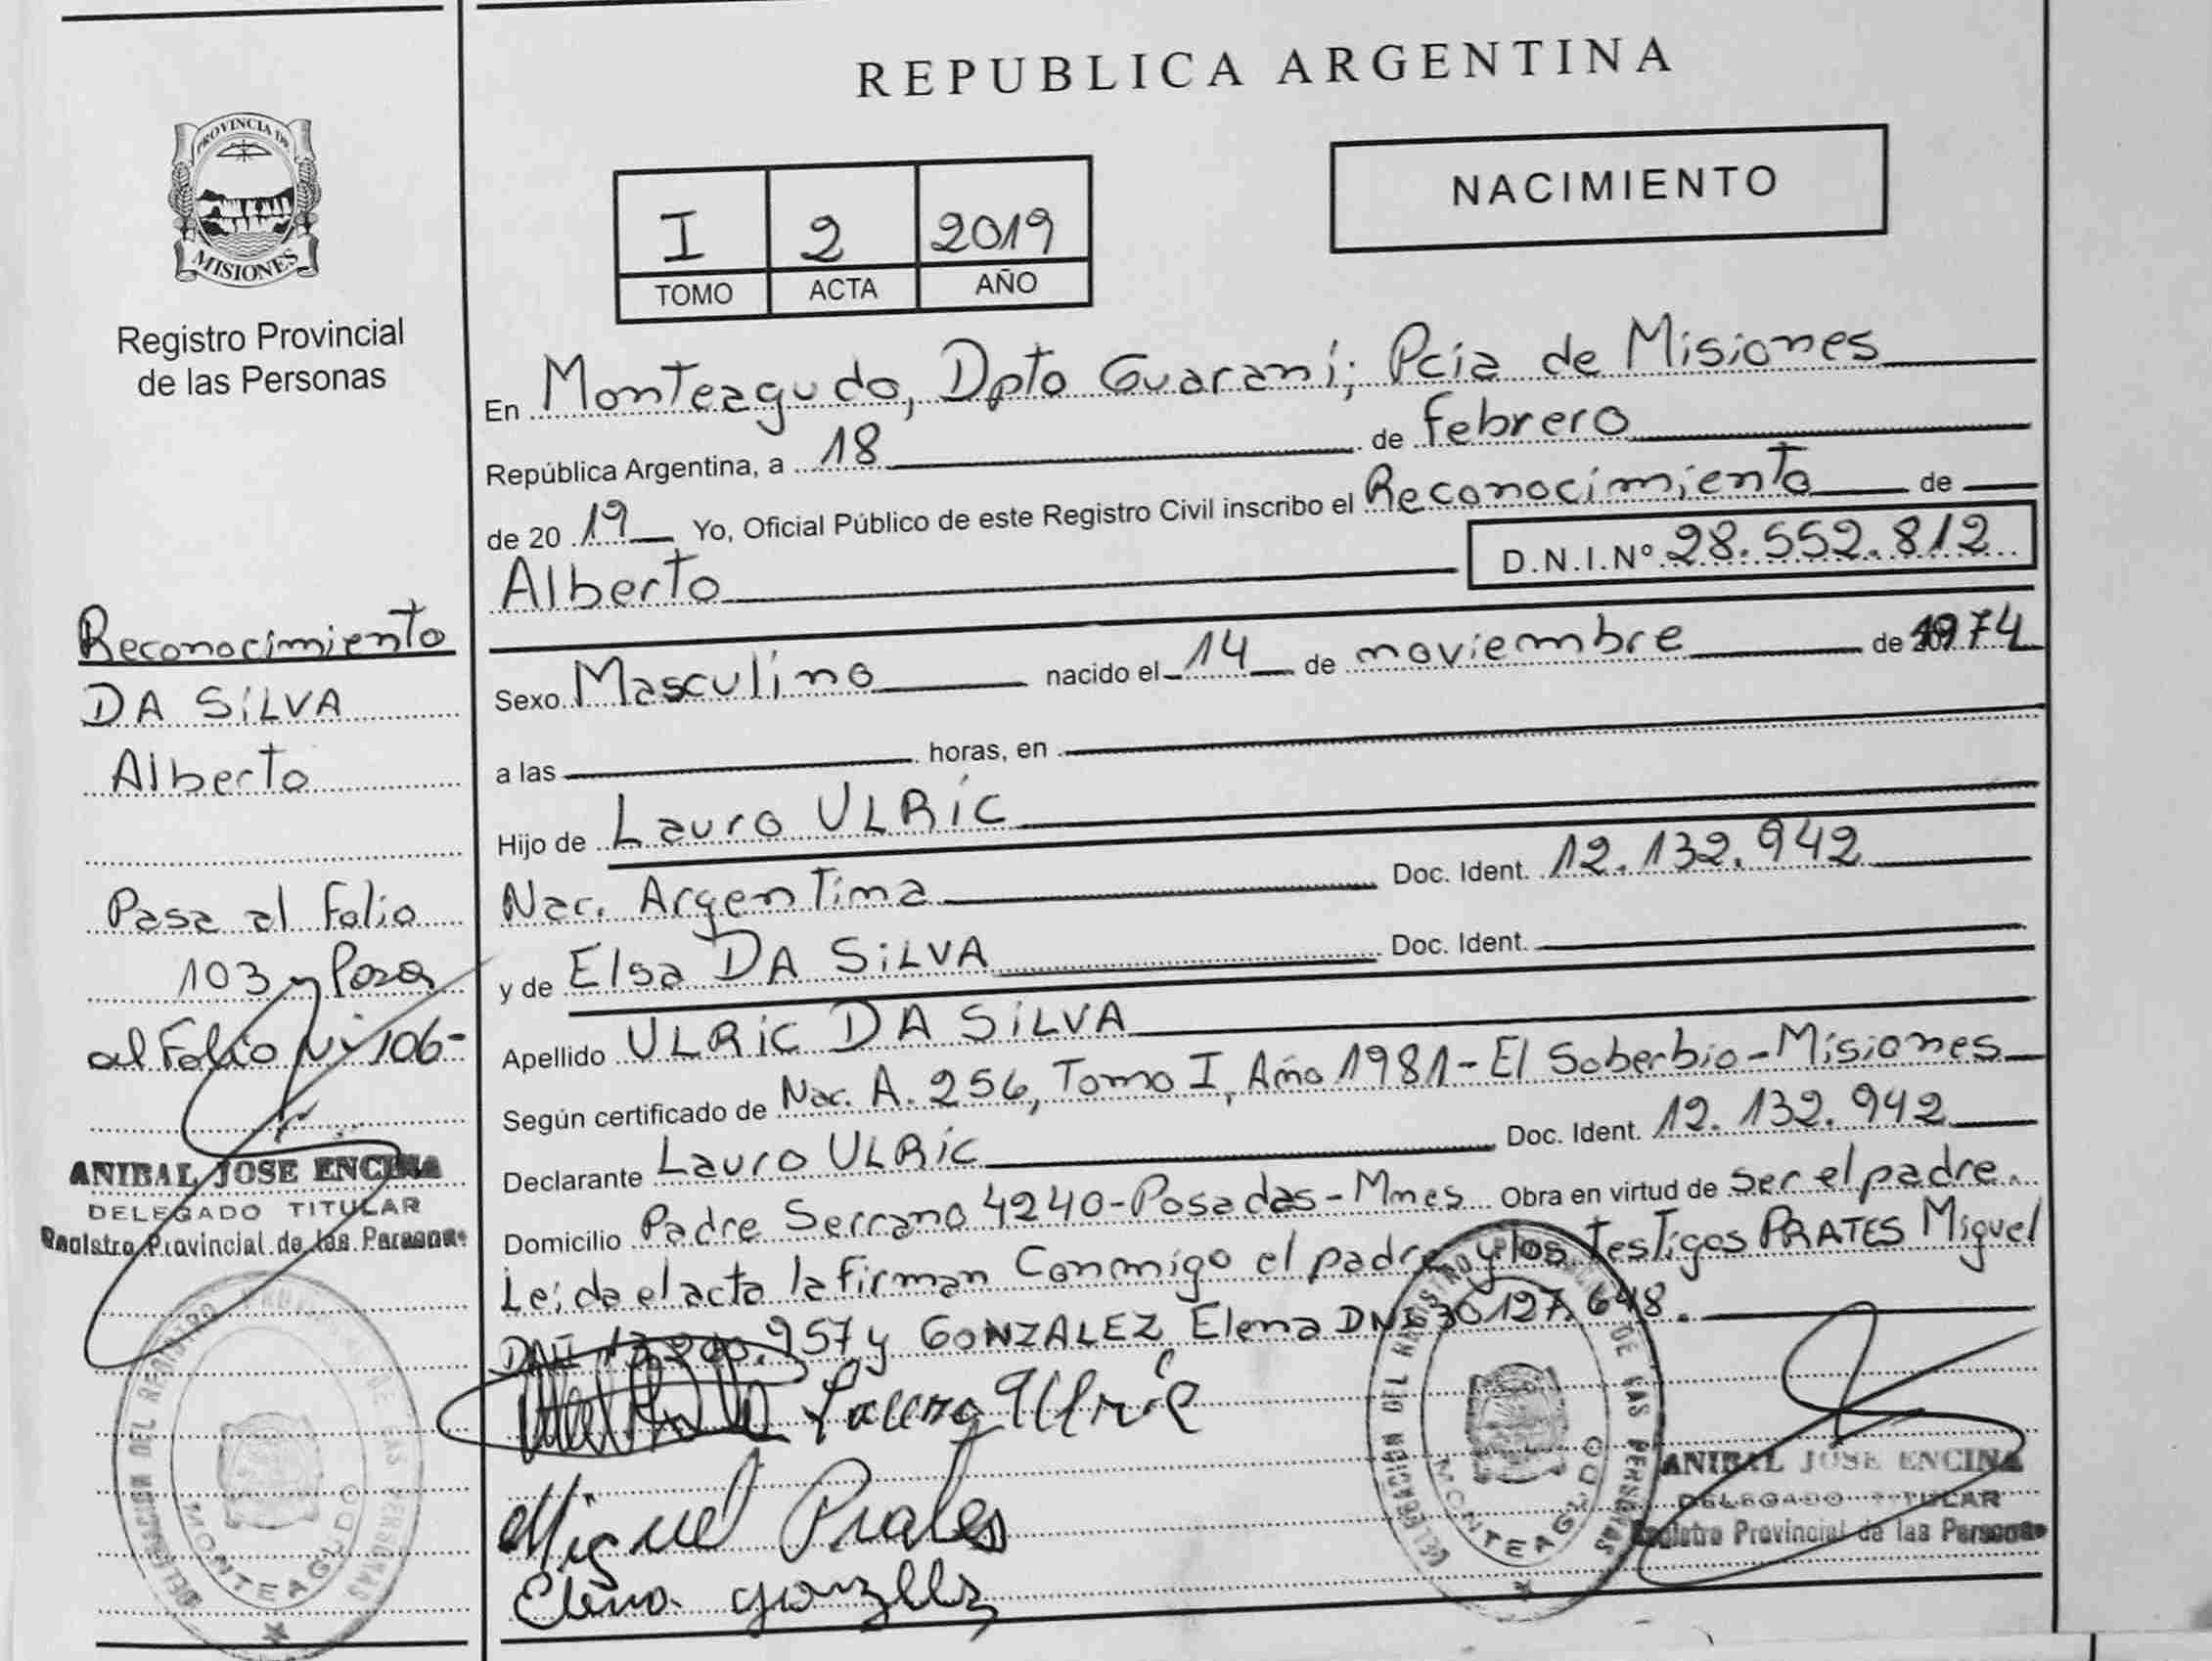 REPUBLICA ARGENTINA
PROVINCIA DE
MISIONES
Registro Provincial
de las Personas
NACIMIENTO
I 2 2019
TOMO ACTA AÑO
En Monteagudo, Dpto Guaraní; Pcia de Misiones
República Argentina, a 18 de febrero
de 2019 Yo, Oficial Público de este Registro Civil inscribo el Reconocimiento de
Alberto D.N.I.Nº 28.552.812
Sexo Masculino nacido el 14 de noviembre de 1974
a las horas, en
Hijo de Lauro ULRiC
Nac. Argentina Doc. Ident. 12.132.942
y de Elsa DA SiLVA Doc. Ident.
Apellido ULRiC DA SiLVA
Según certificado de Nac. A. 256, Tomo I, Año 1981 - El Soberbio - Misiones
Declarante Lauro ULRiC Doc. Ident. 12.132.942
Domicilio Padre Serrano 4240 - Posadas - Mnes Obra en virtud de ser el padre.
Leida el acta la firman Conmigo el padre y los testigos PRATES Miguel
DNI 957 y GONZALEZ Elena DNI 30127.648.
Lauro Ulric
Miguel Prates
Elena gonzllz
Reconocimiento
DA SiLVA
Alberto
Pasa al Folio
103 y Pasa
al Folio Nº 106-
ANIBAL JOSE ENCINA
DELEGADO TITULAR
Registro Provincial de las Personas
DELEGACION DEL REGISTRO PROVINCIAL DE LAS PERSONAS
MONTEAGUDO
DELEGACION DEL REGISTRO PROVINCIAL DE LAS PERSONAS
MONTEAGUDO
ANIBAL JOSE ENCINA
DELEGADO TITULAR
Registro Provincial de las Personas